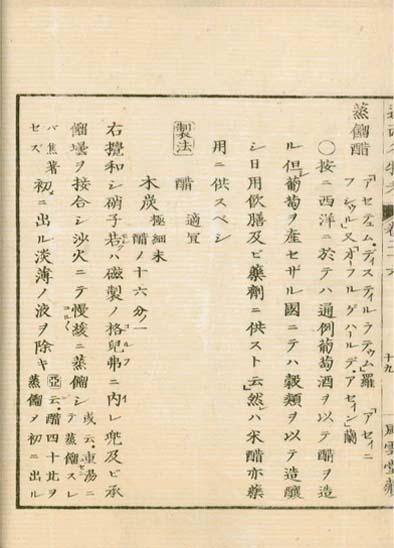 蒸餾醋 「アセテュムディスティルラテュム」羅 「アセイニ
フシウル」又「オーフルゲハールデ、アセイン」蘭
〇按ニ西洋ニ於テハ通例葡萄酒ヲ以テ醋ヲ造
ル但シ葡萄ヲ産セザル國ニテハ穀類ヲ以テ造釀
シ日用飲膳及ビ藥劑ニ供スト云然レバ米醋亦藥
用ニ供スベシ
製法
醋 適宜
木炭 極細末 醋ノ十六分ノ一
右攪和シ硝子若クハ磁製ノ格兒弗ニ内レ兜及ビ承
コルフ
餾壜ヲ接合シ沙火ニテ慢緩ニ蒸餾シ 或云東蕩ニテ蒸餾スレ
バ焦著セズ 初ニ出ル淡薄ノ液ヲ除キ 亞云醋四十比ヲ蒸餾メ初ニ出ル
十九
風雲堂藏